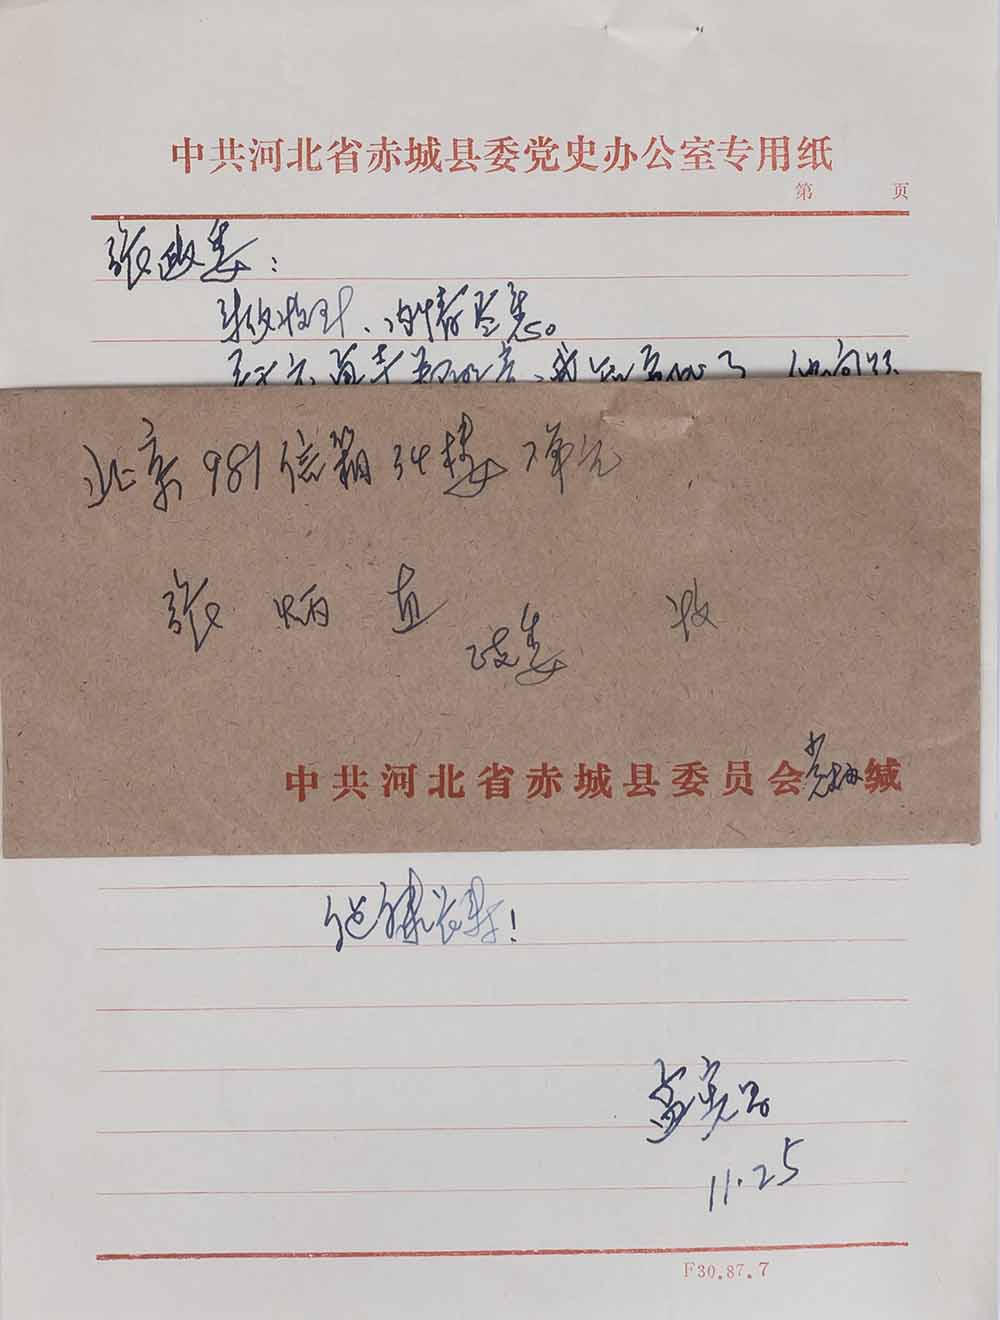 中共河北省赤城县委党史办公室专用纸
第 页
张政委：
来信收到、内情尽悉。
北京981信箱34楼7单元
张炳直
政委 收
中共河北省赤城县委员会党史办缄
健康长寿！
孟宪
11.25
F30.87.7